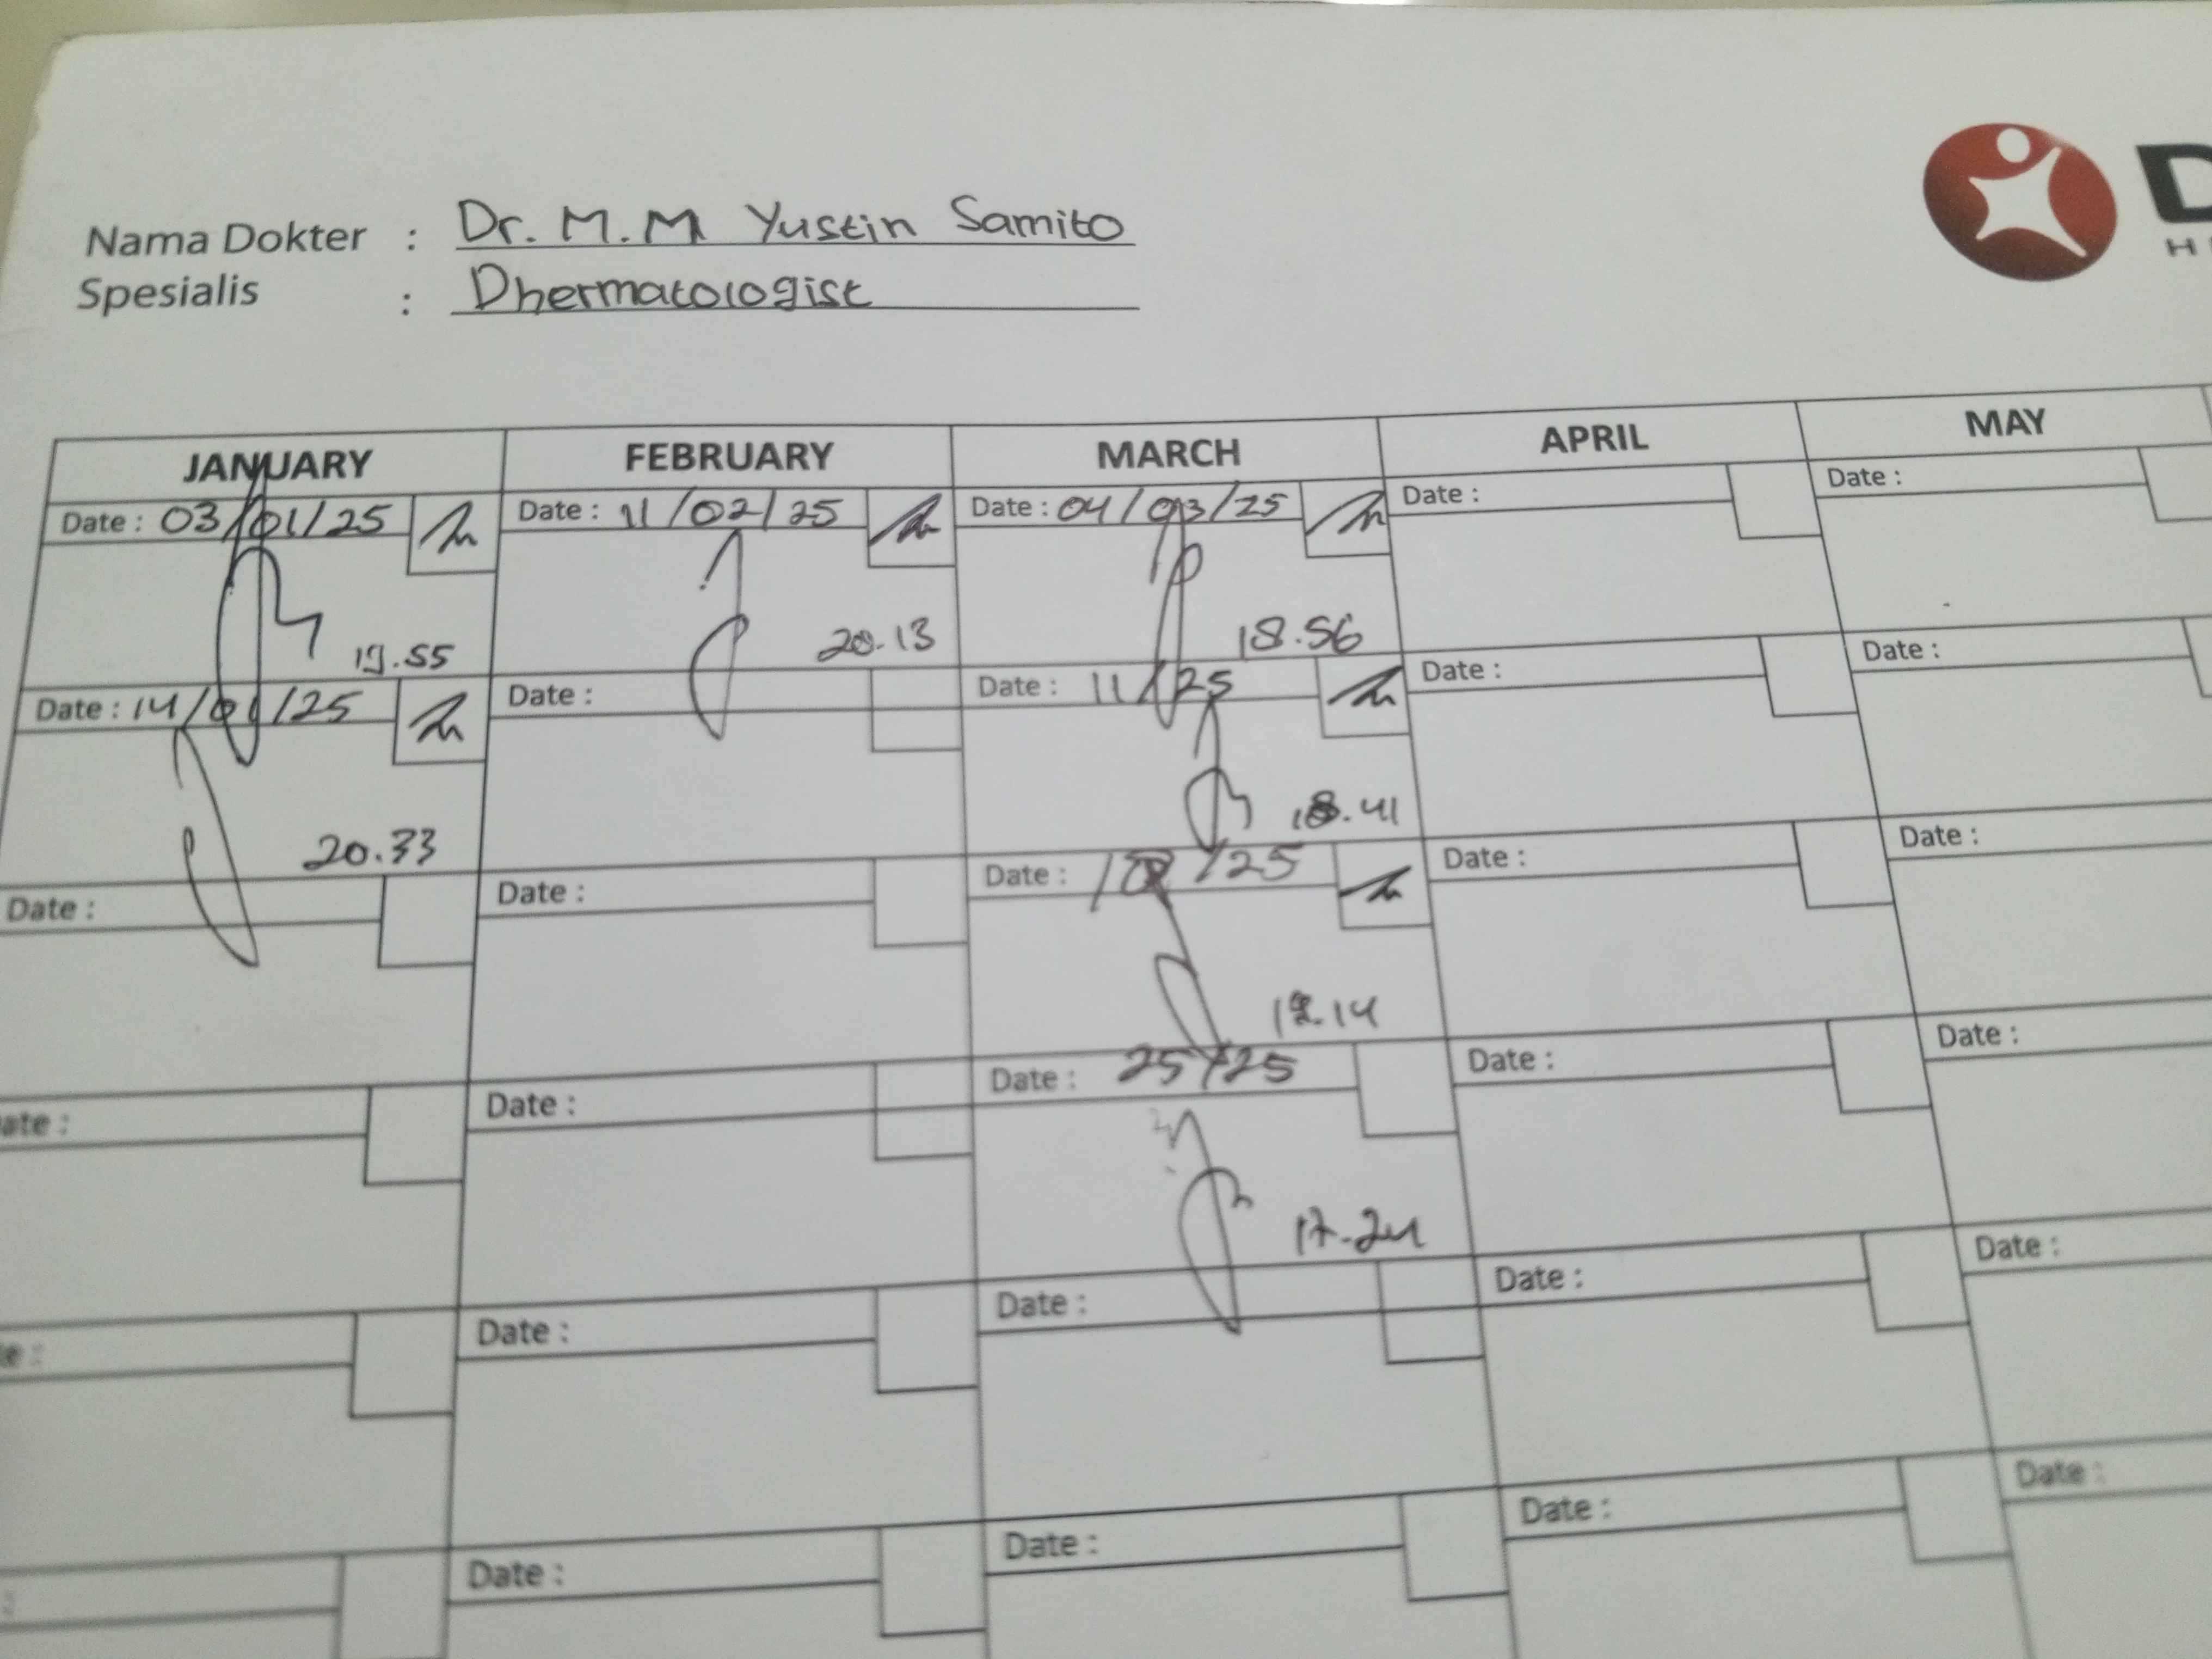 Nama Dokter : Dr. M. M Yustin Samito
Spesialis : Dhermatologist
D
H
JANUARY FEBRUARY MARCH APRIL MAY
Date : 03/01/25 Date : 11/02/25 Date : 04/03/25 Date : Date :
19.55 20.13 18.56
Date : 14/01/25 Date : Date : 11/25 Date : Date :
20.33 18.41
Date : Date : Date : /25 Date : Date :
.14
ate : Date : Date : 25/25 Date : Date :
17.24
e : Date : Date : Date : Date :
: Date : Date : Date : Date :